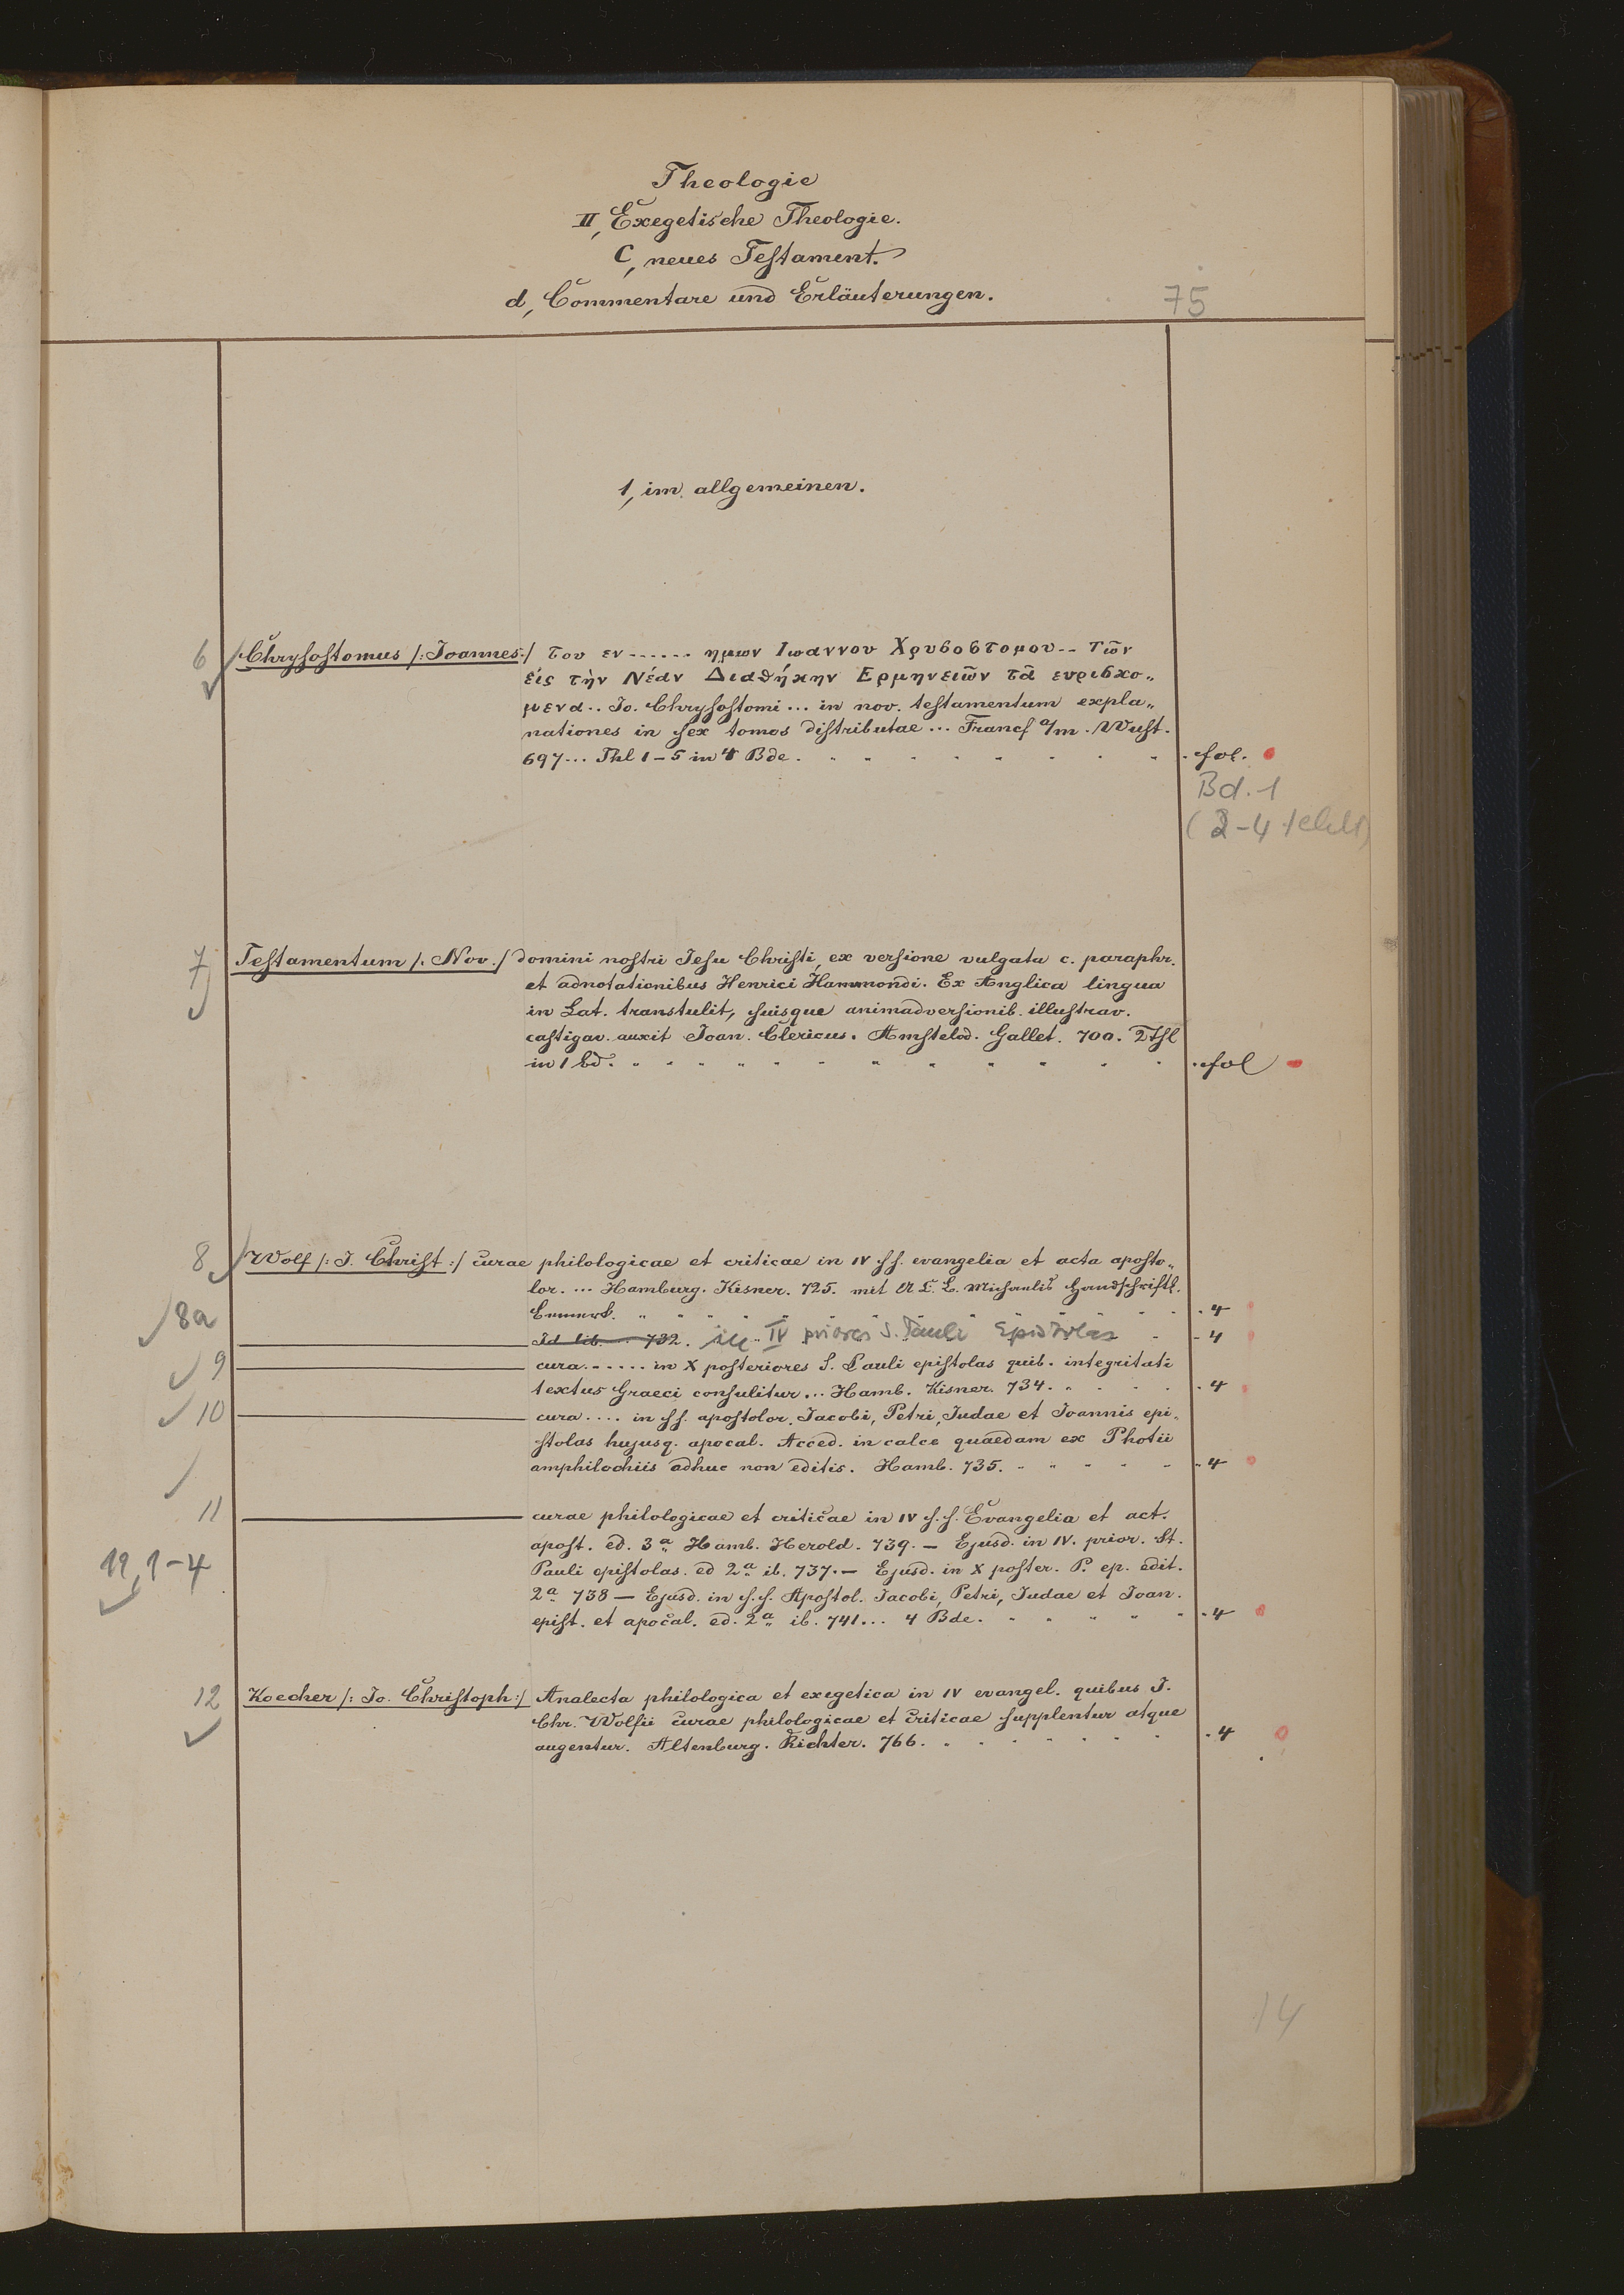 Theologie
II, Exegetische Theologie.
C, neues Testament.
d, Commentare und Erläuterungen.
75
1, im allgemeinen.
6 Chrysostomus /: Joannes :/ του εν ...... ημων Ιωαννου Χρυσοστομου .. Τῶν
εἰς τὴν Νέαν Διαθήκην Ερμηνειῶν τὰ ευρισκο„
μενα .. Jo. Chrysostomi ... in nov. testamentum expla„
nationes in sex tomos distributae ... Francf a/m. Wust.
697 ... Thl 1-5 in 4 Bde. fol.
Bd. 1
(2-4 fehlt)
7 Testamentum /: Nov. :/ domini nostri Jesu Christi, ex versione vulgata c. paraphr.
et adnotationibus Henrici Hammondi. Ex Anglica lingua
in Lat. transtulit, suisque animadversionib. illustrav.
castigav. auxit Joan. Clericus. Amstelod. Gallet. 700. 2 Thl
in 1 Bd. fol
8 Wolf /: J. Christ :/ curae philologicae et criticae in IV ss. evangelia et acta aposto„
lor. ... Hamburg. Kisner. 725. mit Michaelis handschriftl.
4
8a Id lib ... 732. in IV priores S. Pauli Epistolas 4
9 cura ...... in X posteriores S. Pauli epistolas quib. integritati
textus Graeci consulitur ... Hamb. Kisner. 734. 4
10 cura .... in ss. apostolor. Jacobi, Petri, Judae et Joannis epi„
stolas hujusq. apocal. Acced. in calce quaedam ex Photii
amphilochiis adhuc non editis. Hamb. 735. 4
11 curae philologicae et criticae in IV s.s. Evangelia et act.
apost. ed. 3a Hamb. Herold. 739. — Ejusd. in IV. prior. St.
11, 1-4 Pauli epistolas. ed 2a ib. 737. — Ejusd. in X poster. P. ep. edit.
2a 738 — Ejusd. in s.s. Apostol. Jacobi, Petri, Judae et Joan.
epist. et apocal. ed. 2a ib. 741 ... 4 Bde. 4
12 Koecher /: Jo. Christoph :/ Analecta philologica et exegetica in IV evangel. quibus J.
Chr. Wolfii curae philologicae et criticae supplentur atque
augentur. Altenburg. Richter. 766. 4
14